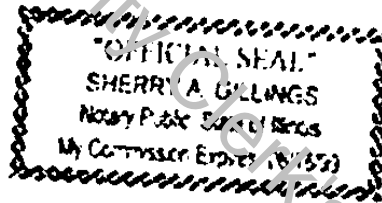 "OFFICIAL SEAL"
SHERRY A. GILLINGS
Notary Public, State of Illinois
My Commission Expires